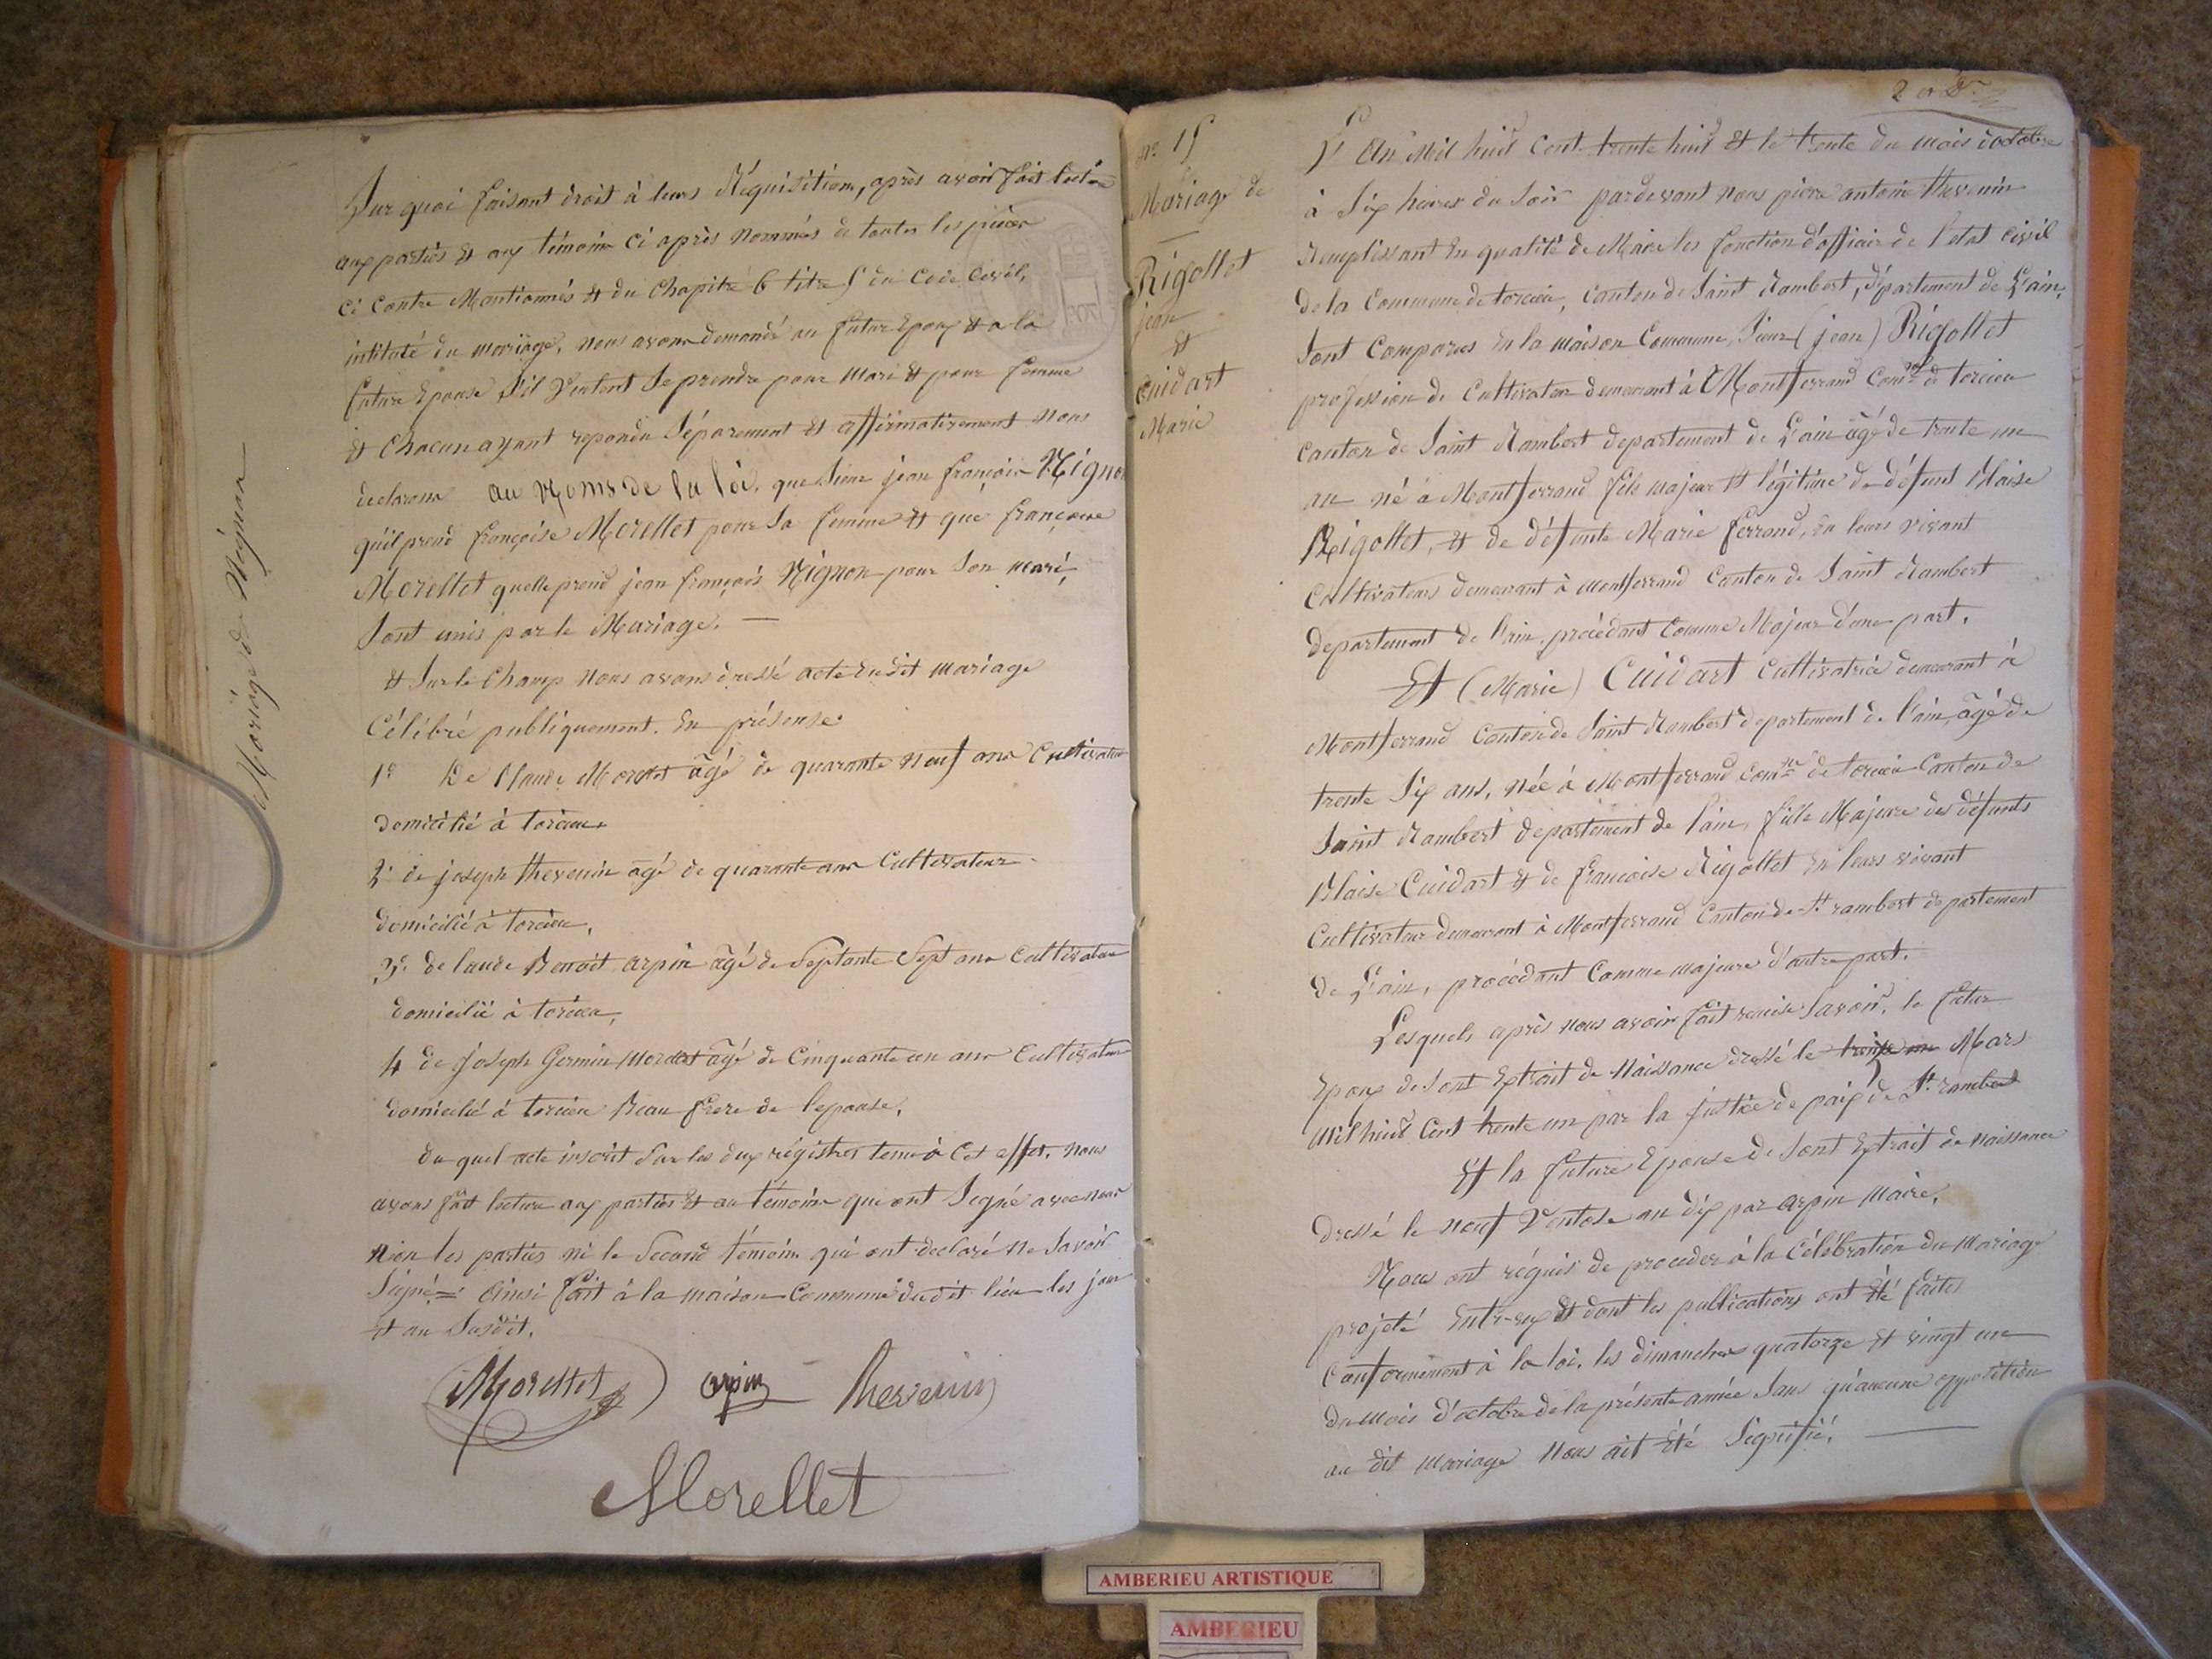 Mariage de Nignon
Sur quoi faisant droit à leurs Réquisitions, après avoir fait lecture
aux parties et aux témoins ci après nommés de toutes les pièces
ci contre Mentionnés et du Chapitre 6 titre 5 du Code Civil,
intitulé du mariage, nous avons demandé au futur Epoux et a la
future Epouse s'il veulent se prendre pour Mari et pour femme
et chacun ayant repondu Séparement et affirmativement nous
declarons au Noms de la loi, que Sieur jean françois Nignon
qu'il prend françoise Morellet pour Sa femme et que françoise
Morellet quelle prend jean françois Nignon pour Son mari,
Sont unis par le Mariage. —
et Sur le Champ nous avons dressé acte dudit mariage
Célébré publiquement. En présense
1º De Claude Morellet âgé de quarante neuf ans Cultivateur
domicilié à torcieu
2º de joseph thevenin âgé de quarante ans Cultivateur
domicilié à torcieu,
3º de laude Benoit arpin âgé de Septante Sept ans Cultivateur
domicilié à torcieu,
4 de joseph Germin Morellet âgé de Cinquante un ans Cultivateur
domicilié à torcieu Beau frere de l'epouse,
du quel acte inscrit Sur les dux régistres tenu à Cet effet, nous
avons fait lecture aux parties et au témoins qui ont Signé avec nous
non les parties ni le Second témoin qui ont declaré ne Savoir
Signé = ainsi fait à la maison Commune dudit lieu les jour
et an Susdit.
Morellet arpin thevenin
Morellet
nº 15
Mariage de
Rigollet
jean
et
Cuidart
Marie
L'An Mil huit Cent trente huit et le trente du mois doctobre
à Six heures du Soir pardevant nous pierre antoine thevenin
Remplissant En qualité de Maire les fonction d'officier de l'etat Civil
de la Commune de torcieu, Canton de Saint Rambert, département de L'ain,
Sont Comparus En la maison Commune, Sieur (jean) Rigollet
profession de Cultivateur demeurant à Montferrand Comne de torcieu
Canton de Saint Rambert departement de L'ain âgé de trente un
an né à Montferrand fils majeur et légitime de défunt Blaise
Rigollet, et de défunte Marie ferrand, En leurs vivant
Cultivateurs demeurant à Montferrand Canton de Saint Rambert
departement de l'ain, procédant Comme Majeur d'une part.
Et (Marie) Cuidart Cultivatrice demeurant à
Montferrand Canton de Saint Rambert departement de l'ain, âgé de
trente Six ans, née à Montferrand Comne de torcieu Canton de
Saint Rambert departement de l'ain, fille Majeure des défunts
Blaise Cuidart et de francoise Rigollet En leurs vivant
Cultivateur demeurant à Montferrand Canton de St rambert departement
de L'ain, procédant Comme majeure d'autre part.
Lesquels après nous avoir fait remise Savoir, le futur
Epoux de Sont Extrait de Naissance dressé le Mars
Mil huit Cent trente un par la justice de paix de St. rambert
Et la future Epouse de Sont Extrait de naissance
dressé le neuf Ventose an dix par arpin Maire.
Nous ont réquis de proceder à la Célébration du Mariage
projeté Entr-eux et dont les publications ont été faites
Conformément à la loi, les dimanches quatorze et vingt un
du Mois d'octobre de la présente année Sans qu'aucune opposition
au dit Mariage Nous ait été Signifié. —
AMBERIEU ARTISTIQUE
AMBERIEU